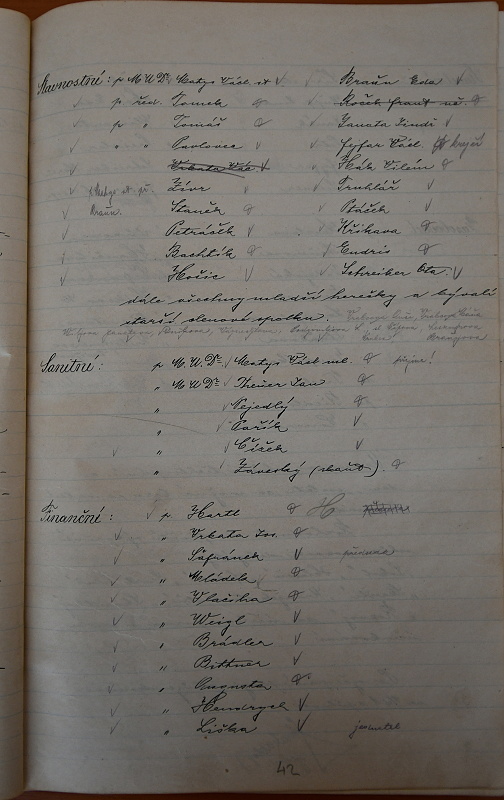 Slavnostné: p. M.U.Dr. Matys Václ. st. Braun Eda
p. řed. Tomek Roček Frant.
p. " Tomáš Janata Jindř.
" " Pavlovec Fejfar Václ. krejčí
Vrbata Vác. Hák Vilém
Zívr Truhlář
Braun. Staněk Ptáček
Petráček Křikava
Bachtík Endris
Hořic Schreiber Ota.
dále všechny mladší herečky a bývalé
starší členové spolku.
Sanitné: p. M.U.Dr. Matys Václ. ml. přijme!
" M.U.Dr. Theuer Jan
" Nejedlý
" Pařík
" Čížek
" Záveský (skaut).
Finanční: p. Hartl H
" Vrbata Jos.
" Šafránek
" Mládek
" Vlačiha
" Weigl
" Brádler
" Bittner
" Augusta
" Hendrych
" Liška jednatel
42